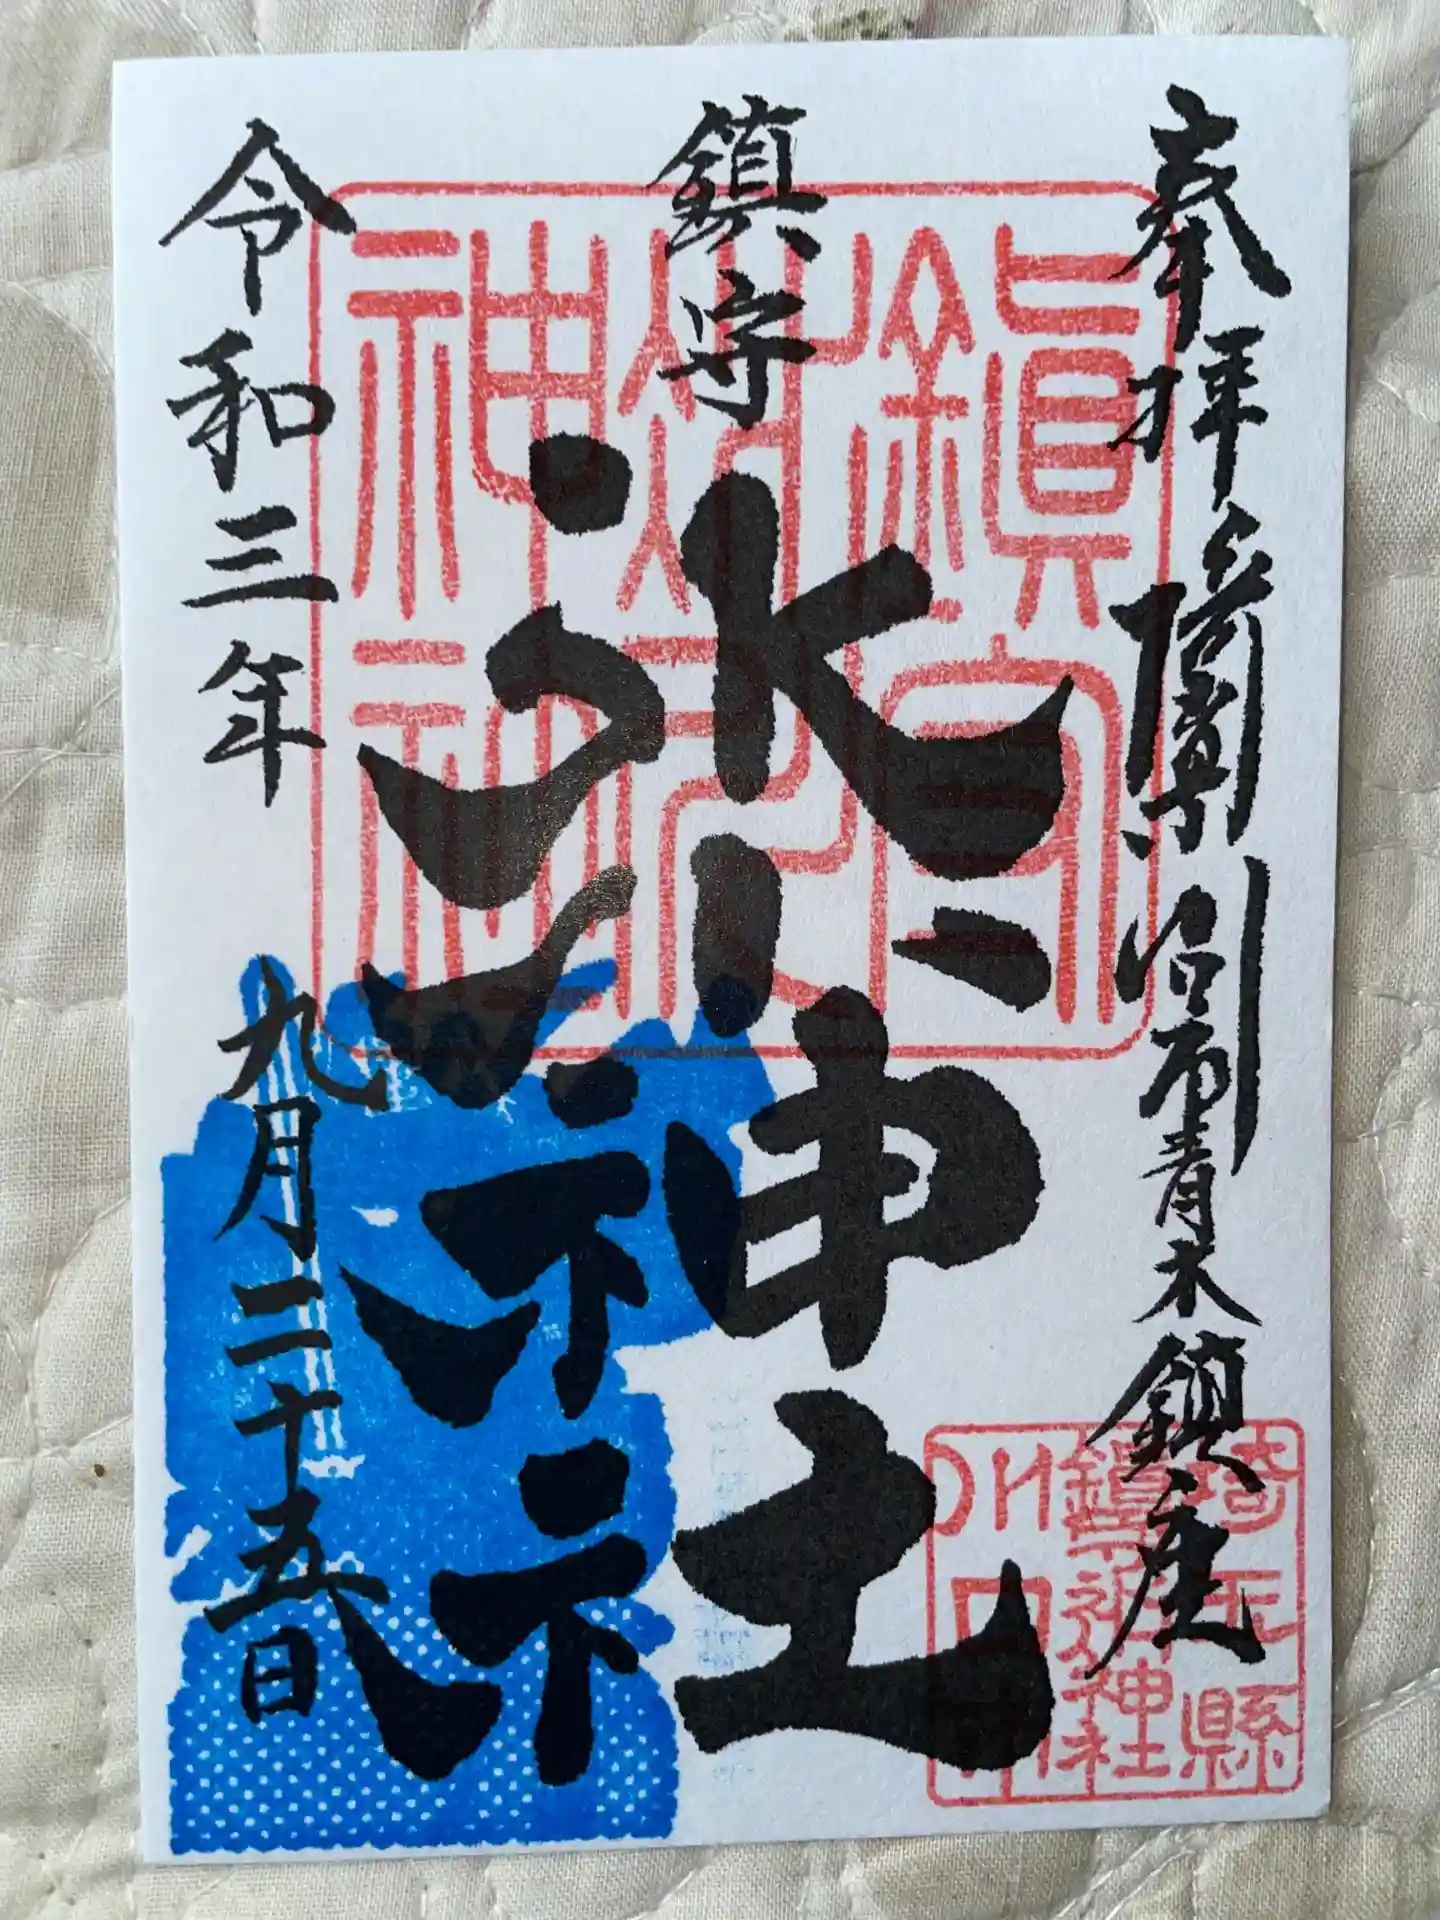 奉拝 埼玉県川口市青木鎮座
鎮守
氷川神社
令和三年 九月二十五日
鎮守氷川神社
埼玉縣
鎮守氷川神社
川口